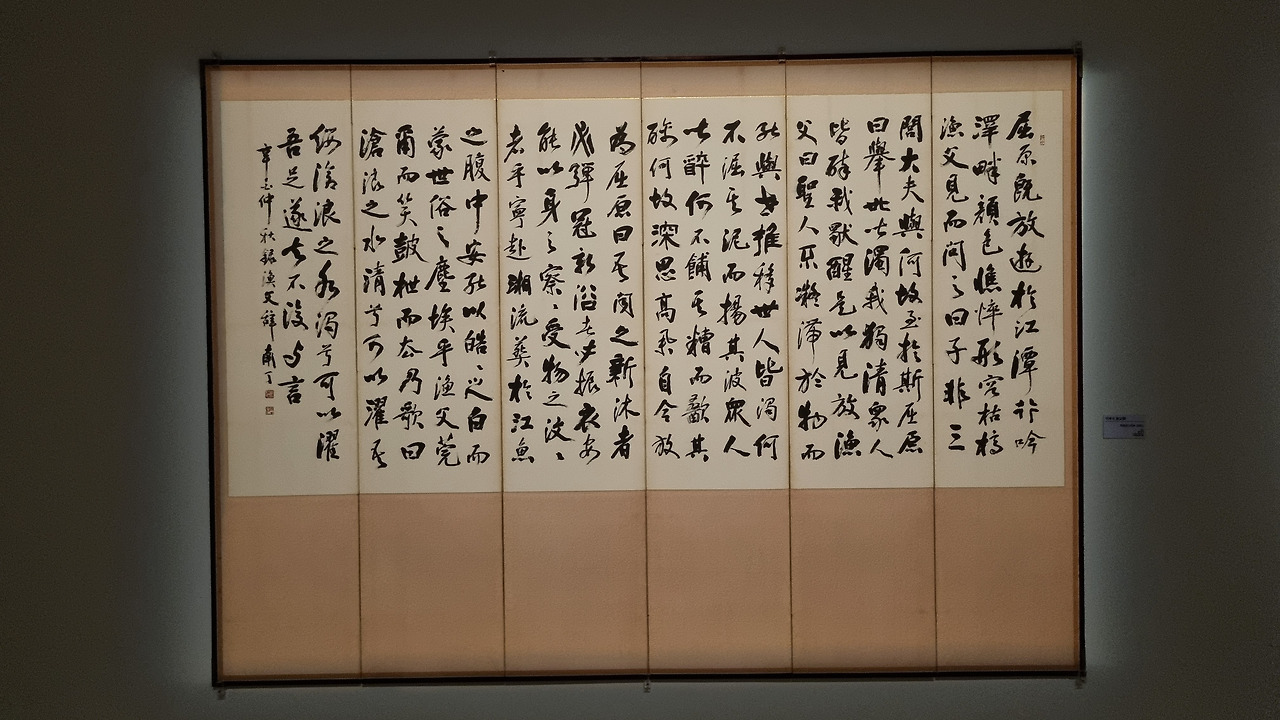 屈原既放遊於江潭行吟
澤畔顔色憔悴形容枯槁
漁父見而問之曰子非三
閭大夫與何故至於斯屈原
曰擧世皆濁我獨清衆人
皆醉我獸醒是以見放漁
父曰聖人不凝滯於物而
能與世推移世人皆濁何
不淈其泥而揚其波衆人
皆醉何不餔其糟而歠其
醨何故深思高擧自令放
為屈原曰吾聞之新沐者
必彈冠新浴者必振衣安
能以身之察〻受物之汶〻
者乎寧赴湘流葬於江魚
之腹中安能以皓〻之白而
蒙世俗之塵埃乎漁父莞
爾而笑鼓枻而去乃歌曰
滄浪之水清兮可以濯吾
纓滄浪之水濁兮可以濯
吾足遂去不復与言
仲秋錄漁父辭